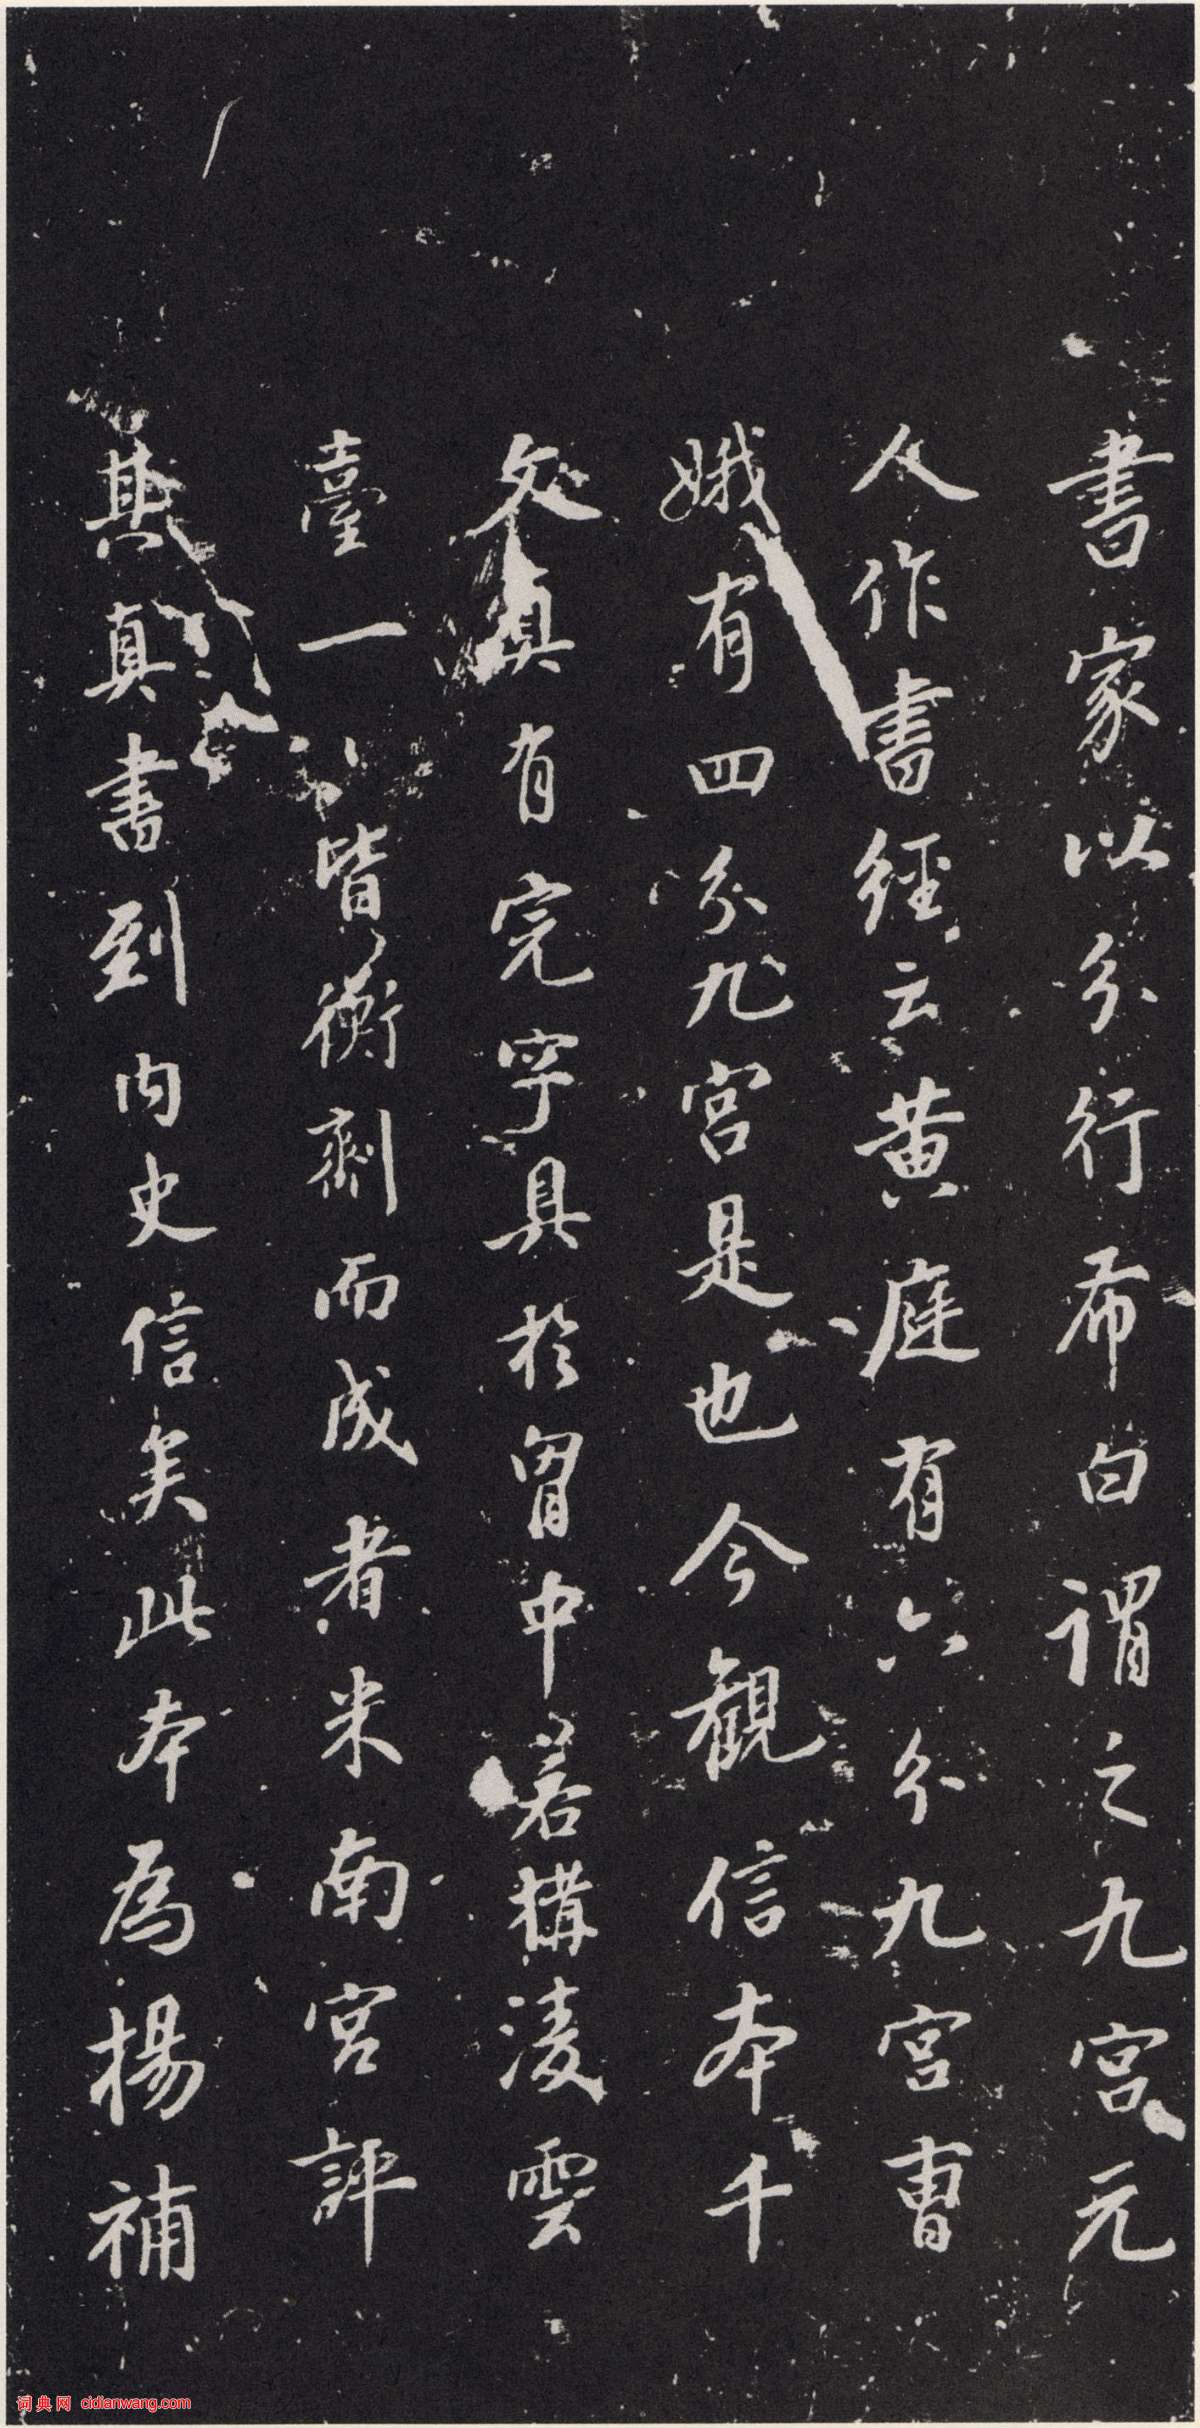 書家以分行布白謂之九宮元
人作書經云黃庭有六分九宮曹
娥有四分九宮是也今觀信本千
文真有完字具於胷中若構凌雲
臺一一皆衡劑而成者米南宮評
其真書到內史信矣此本為楊補
词典网 cidianwang.com